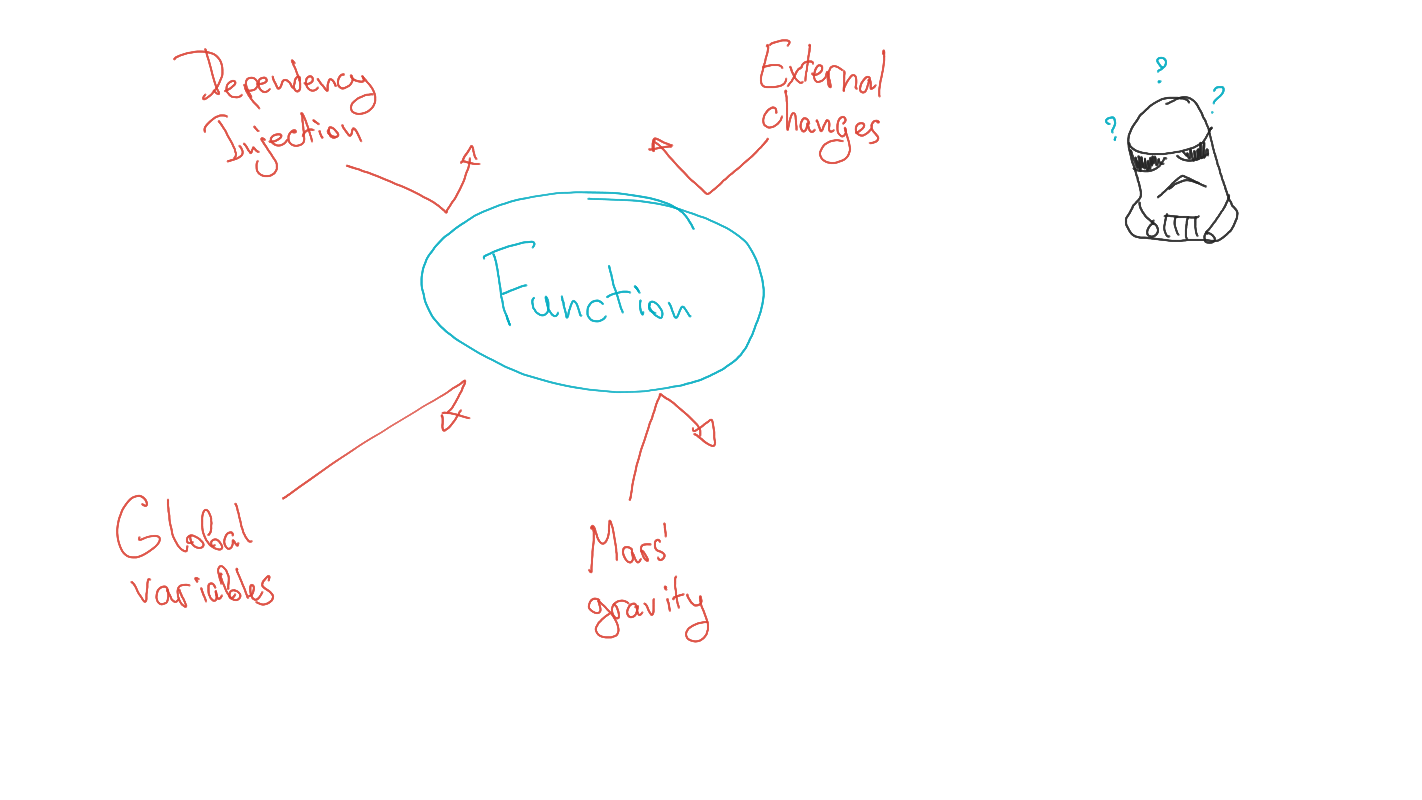 Dependency
Injection
External
changes
?
?
?
Function
Global
variables
Mars'
gravity